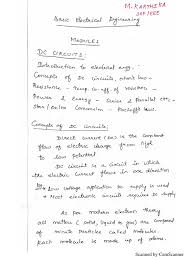 M. KARTHIKA
Basic Electrical Engineering
MODULE 1
DC CIRCUITS:
Introduction to electrical engg.
Concepts of DC circuits, ohm's law -
Resistance - Temp co-eff of
Power & Energy - Series & Parallel ckts -
Star/Delta Conversion - Kirchoff laws.
Concepts of DC circuits:
Direct current (DC) is the constant
flow of electric charge from high
to low potential
DC circuit is a circuit in which
the electric current flows in one direction
low voltage application DC supply is used
Most electronic circuits required DC supply
As per modern electron theory
all matters (solid, liquid or gas) are composed
of minute particles called molecules.
Each molecule is made up of atoms.
Scanned by CamScanner